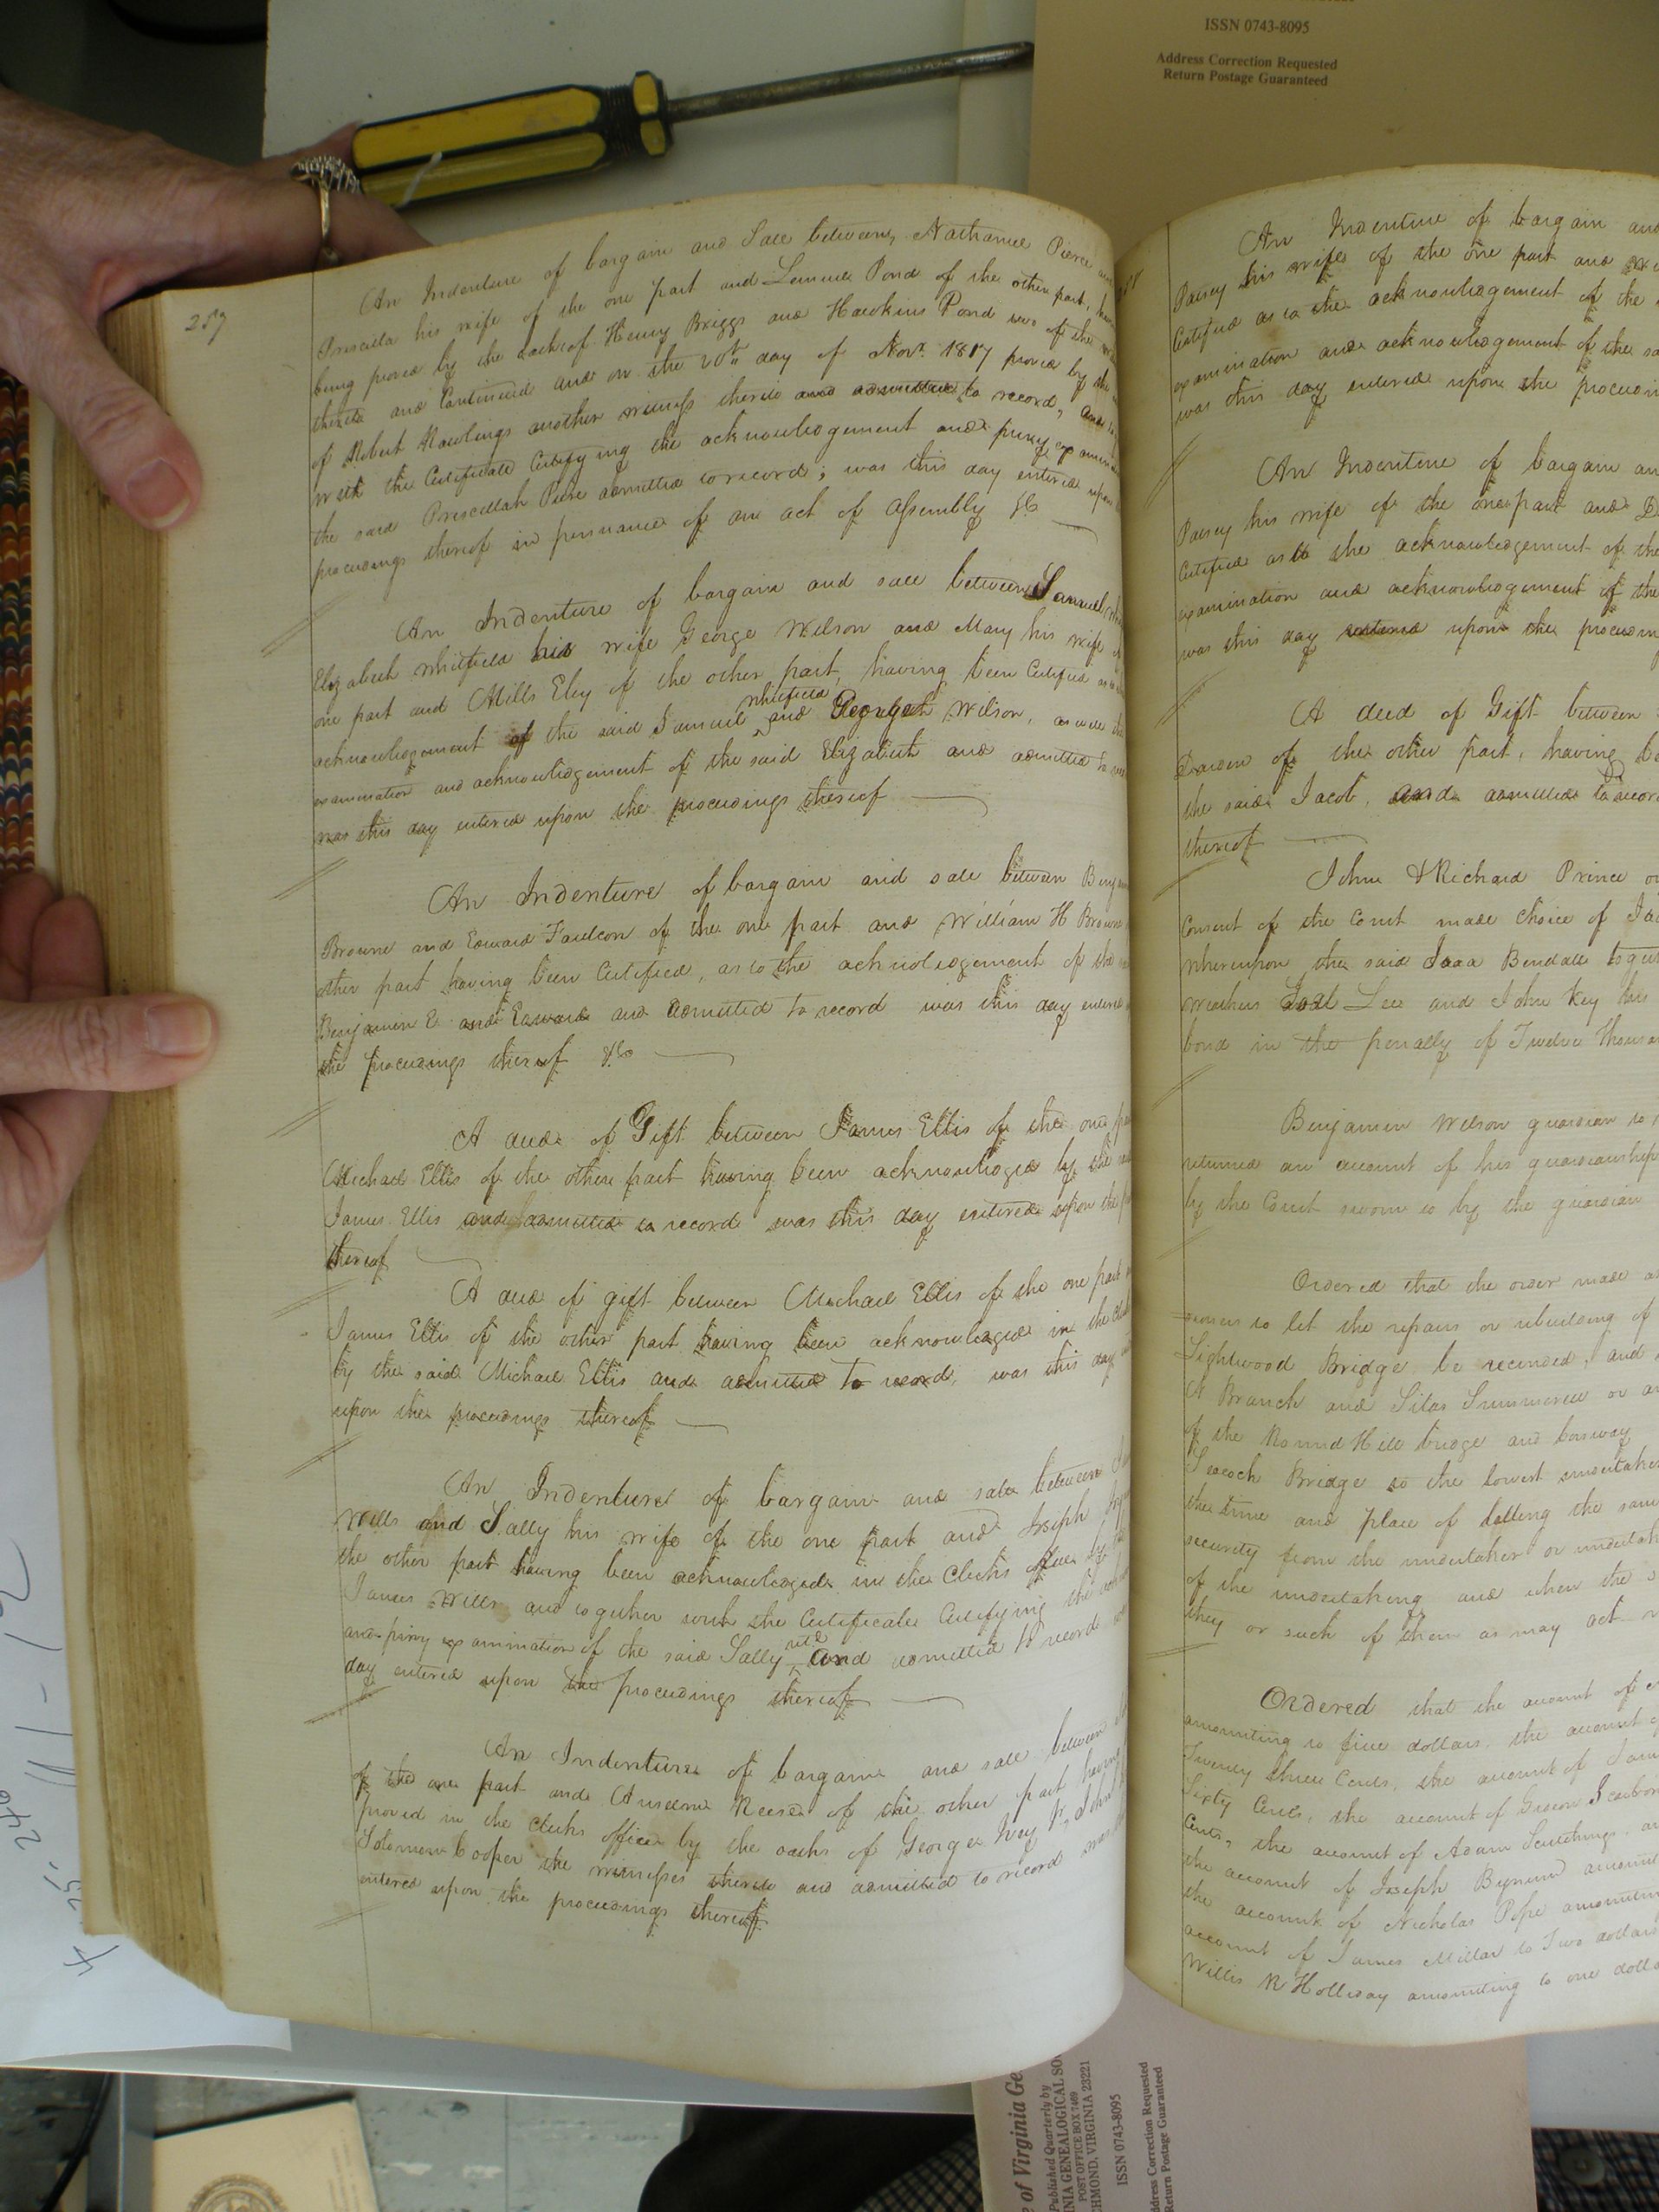 ISSN 0743-8095
Address Correction Requested
Return Postage Guaranteed
257
An Indenture of bargain and Sale between, Nathaniel Pierce and
Priscilla his wife of the one part and Lemuel Pond of the other part,
being proved by the oaths of Henry Briggs and Hawkins Pond two of the
thereto and Continued and on the 20th day of Novr. 1817 proved by the
of Robert Rawlings another witness thereto and admitted to record, and
with the Certificate Certifying the acknowledgement and privy examin
the said Priscillah Pierce admitted to record; was this day entered upon
proceedings thereof in persuance of an act of Assembly &c
An Indenture of bargain and sale between Samuel
Elizabeth Whitfield his wife George Wilson and Mary his wife
one part and Mills Eley of the other part, having been Certified as to
acknowledgement of the said Samuel Whitfield and George Wilson, as to the
examination and acknowledgement of the said Elizabeth and admitted to
was this day entered upon the proceedings thereof
An Indenture of bargain and sale between Benj
Browne and Edward Faulcon of the one part and William H Browne
other part having been Certified, as to the acknoledgement of the
Benjamin E and Edward and admitted to record was this day entered
the proceedings thereof &c
A deed of Gift between James Ellis of the one
Michael Ellis of the other part having been acknowledged by the
James Ellis and admitted to record was this day entered upon the
thereof
A deed of gift between Michael Ellis of the one part
James Ellis of the other part having been acknowledged in the
by the said Michael Ellis and admitted to record, was this day
upon the proceedings thereof
An Indenture of bargain and sale between
Wells and Sally his wife of the one part and Joseph
the other part having been acknowledged in the Clerks office by the
James Wills and together with the Certificate Certifying the
and privy examination of the said Sally and admitted to record
day entered upon the proceedings thereof
An Indenture of bargain and sale between
of the one part and Anselm Reese of the other part having
proved in the Clerks office by the oaths of George Ivey Jr, John
Solomon Cooper the witnesses thereto and admitted to record was
entered upon the proceedings thereof
An Indenture of bargain and
Patsey his wife of the one part and
Certified as to the acknowledgement of the
examination and acknowledgement of the
was this day entered upon the
An Indenture of bargain
Patsey his wife of the one part and
Certified as to the acknowledgement of the
examination and acknowledgement of the
was this day entered upon the
A deed of Gift between
Darden of the other part, having
the said Jacob, and admitted to record
thereof
John & Richard Prince
Consent of the Court made choice of
whereupon the said Isaa Bendall
Joel Lee and John Key his
bond in the penalty of Twelve
Benjamin Wilson guardian to
returned an account of his guardianship
by the Court sworn to by the guardian
Ordered that the order made
to let the repairs or rebuilding of
Lightwood Bridge be recinded, and
Branch and Silas Summerell or
of the Round Hill bridge and Causway
Seacock Bridge to the lowest undertaker
the time and place of letting the same
security from the undertaker or
of the undertaking and when the
they or such of them as may act
Ordered that the account of
amounting to five dollars, the account
Twenty three Cents, the account of
Sixty Cents, the account of Gideon
Cents, the account of Adam
the account of Joseph Bynum
the account of Nicholas Pope
account of James Millar to Two dollars
Willis R Holliday amounting to one
of Virginia Ge
Published Quarterly by
INIA GENEALOGICAL SO
POST OFFICE BOX 7469
CHMOND, VIRGINIA 23221
ISSN 0743-8095
ddress Correction Requested
Return Postage Guaranteed